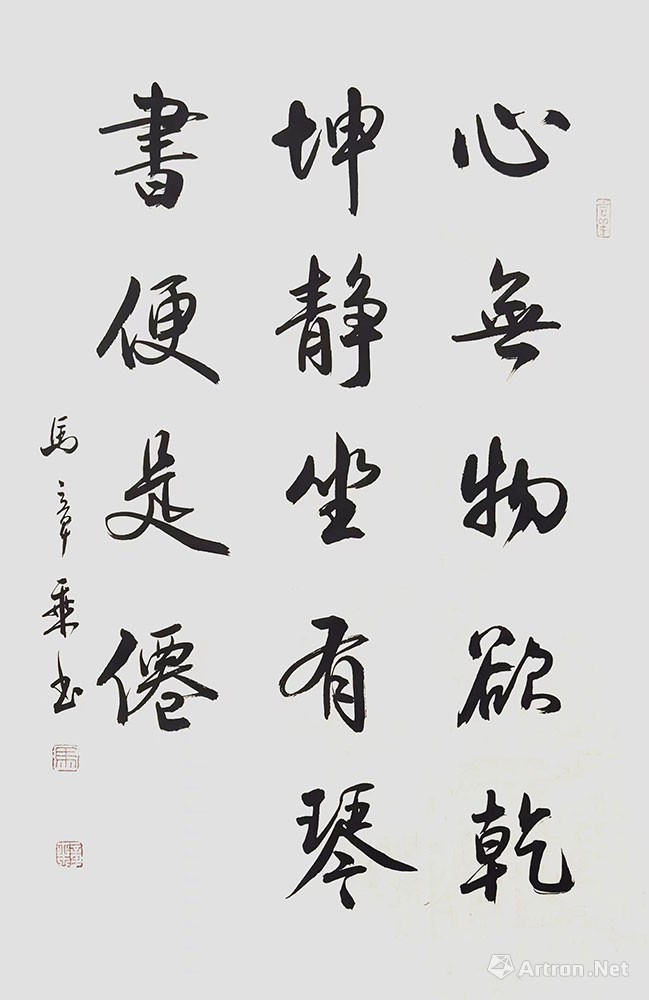 心無物欲乾
坤静坐有琴
書便是僊
馬章乘書
Artron.Net